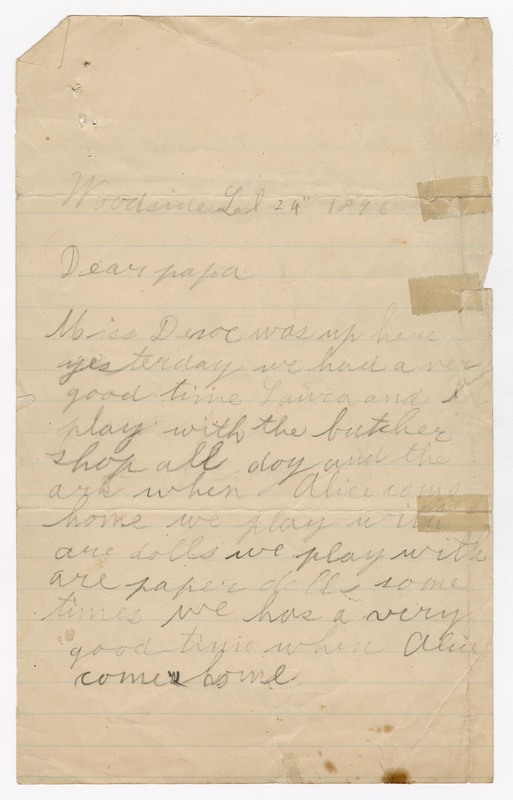 Woodside 24" 1896
Dear papa
Miss was up here
yesterday we had a very
good time Laura and I
play with the butcher
shop all day and the
ark when Alice come
home we play with
are dolls we play with
are paper dolls some
times we has a very
good time when Alice
come home